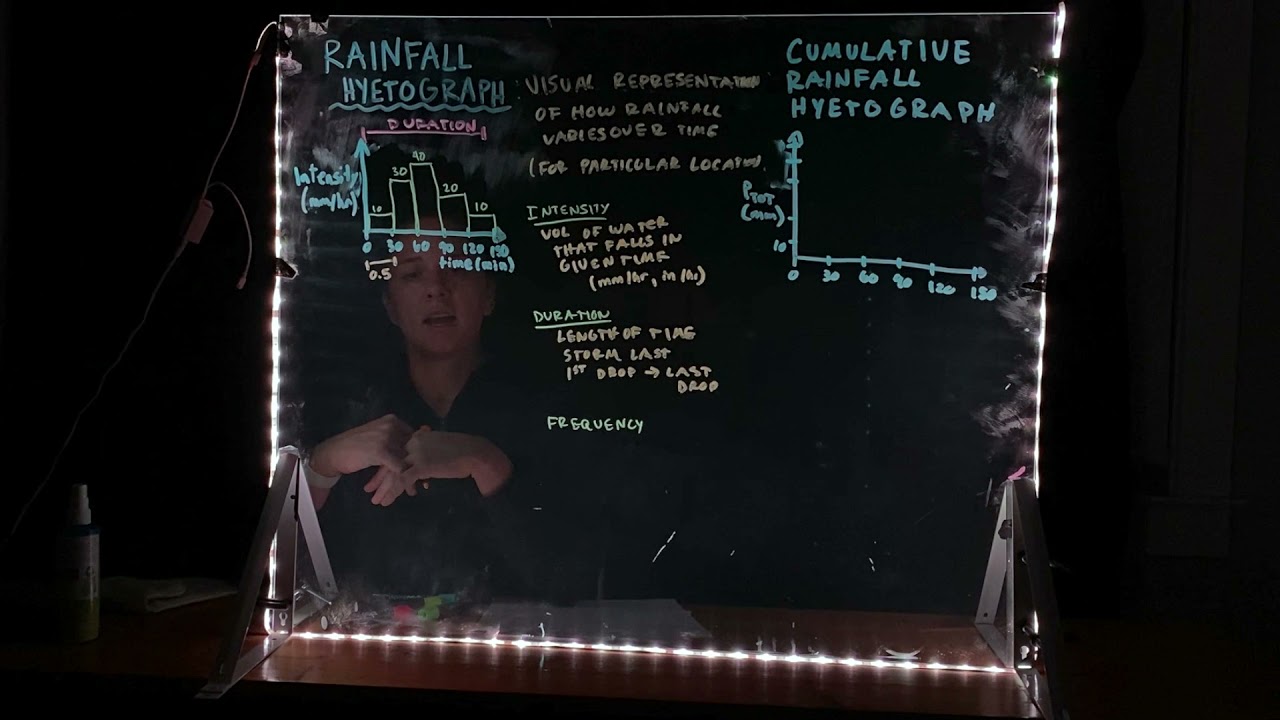 RAINFALL
HYETOGRAPH
DURATION
Intensity
(mm/hr)
10
30
40
20
10
0 30 60 90 120 150
0.5
time (min)
VISUAL REPRESENTATION
OF HOW RAINFALL
VARIES OVER TIME
(FOR PARTICULAR LOCATION
INTENSITY
VOL OF WATER
THAT FALLS IN
GIVEN TIME
(mm/hr, in/hr)
DURATION
LENGTH OF TIME
STORM LAST
1ST DROP → LAST
DROP
FREQUENCY
CUMULATIVE
RAINFALL
HYETOGRAPH
PTOT
(mm)
10
0 30 60 90 120 150